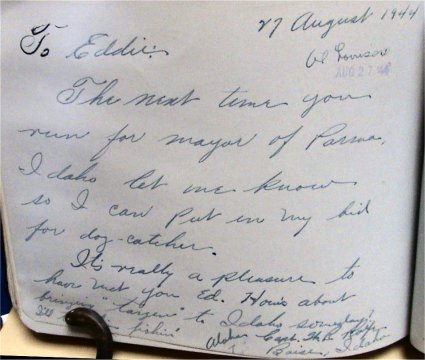 27 August 1944
To Eddie:
AUG 27
The next time you
run for mayor of Parma,
Idaho let me know
so I can put in my bid
for dog-catcher.
It's really a pleasure to
have met you Ed. How's about
bringing "Largen" to Idaho someday?
fishin'
Aloha
Capt.
Boise, Idaho